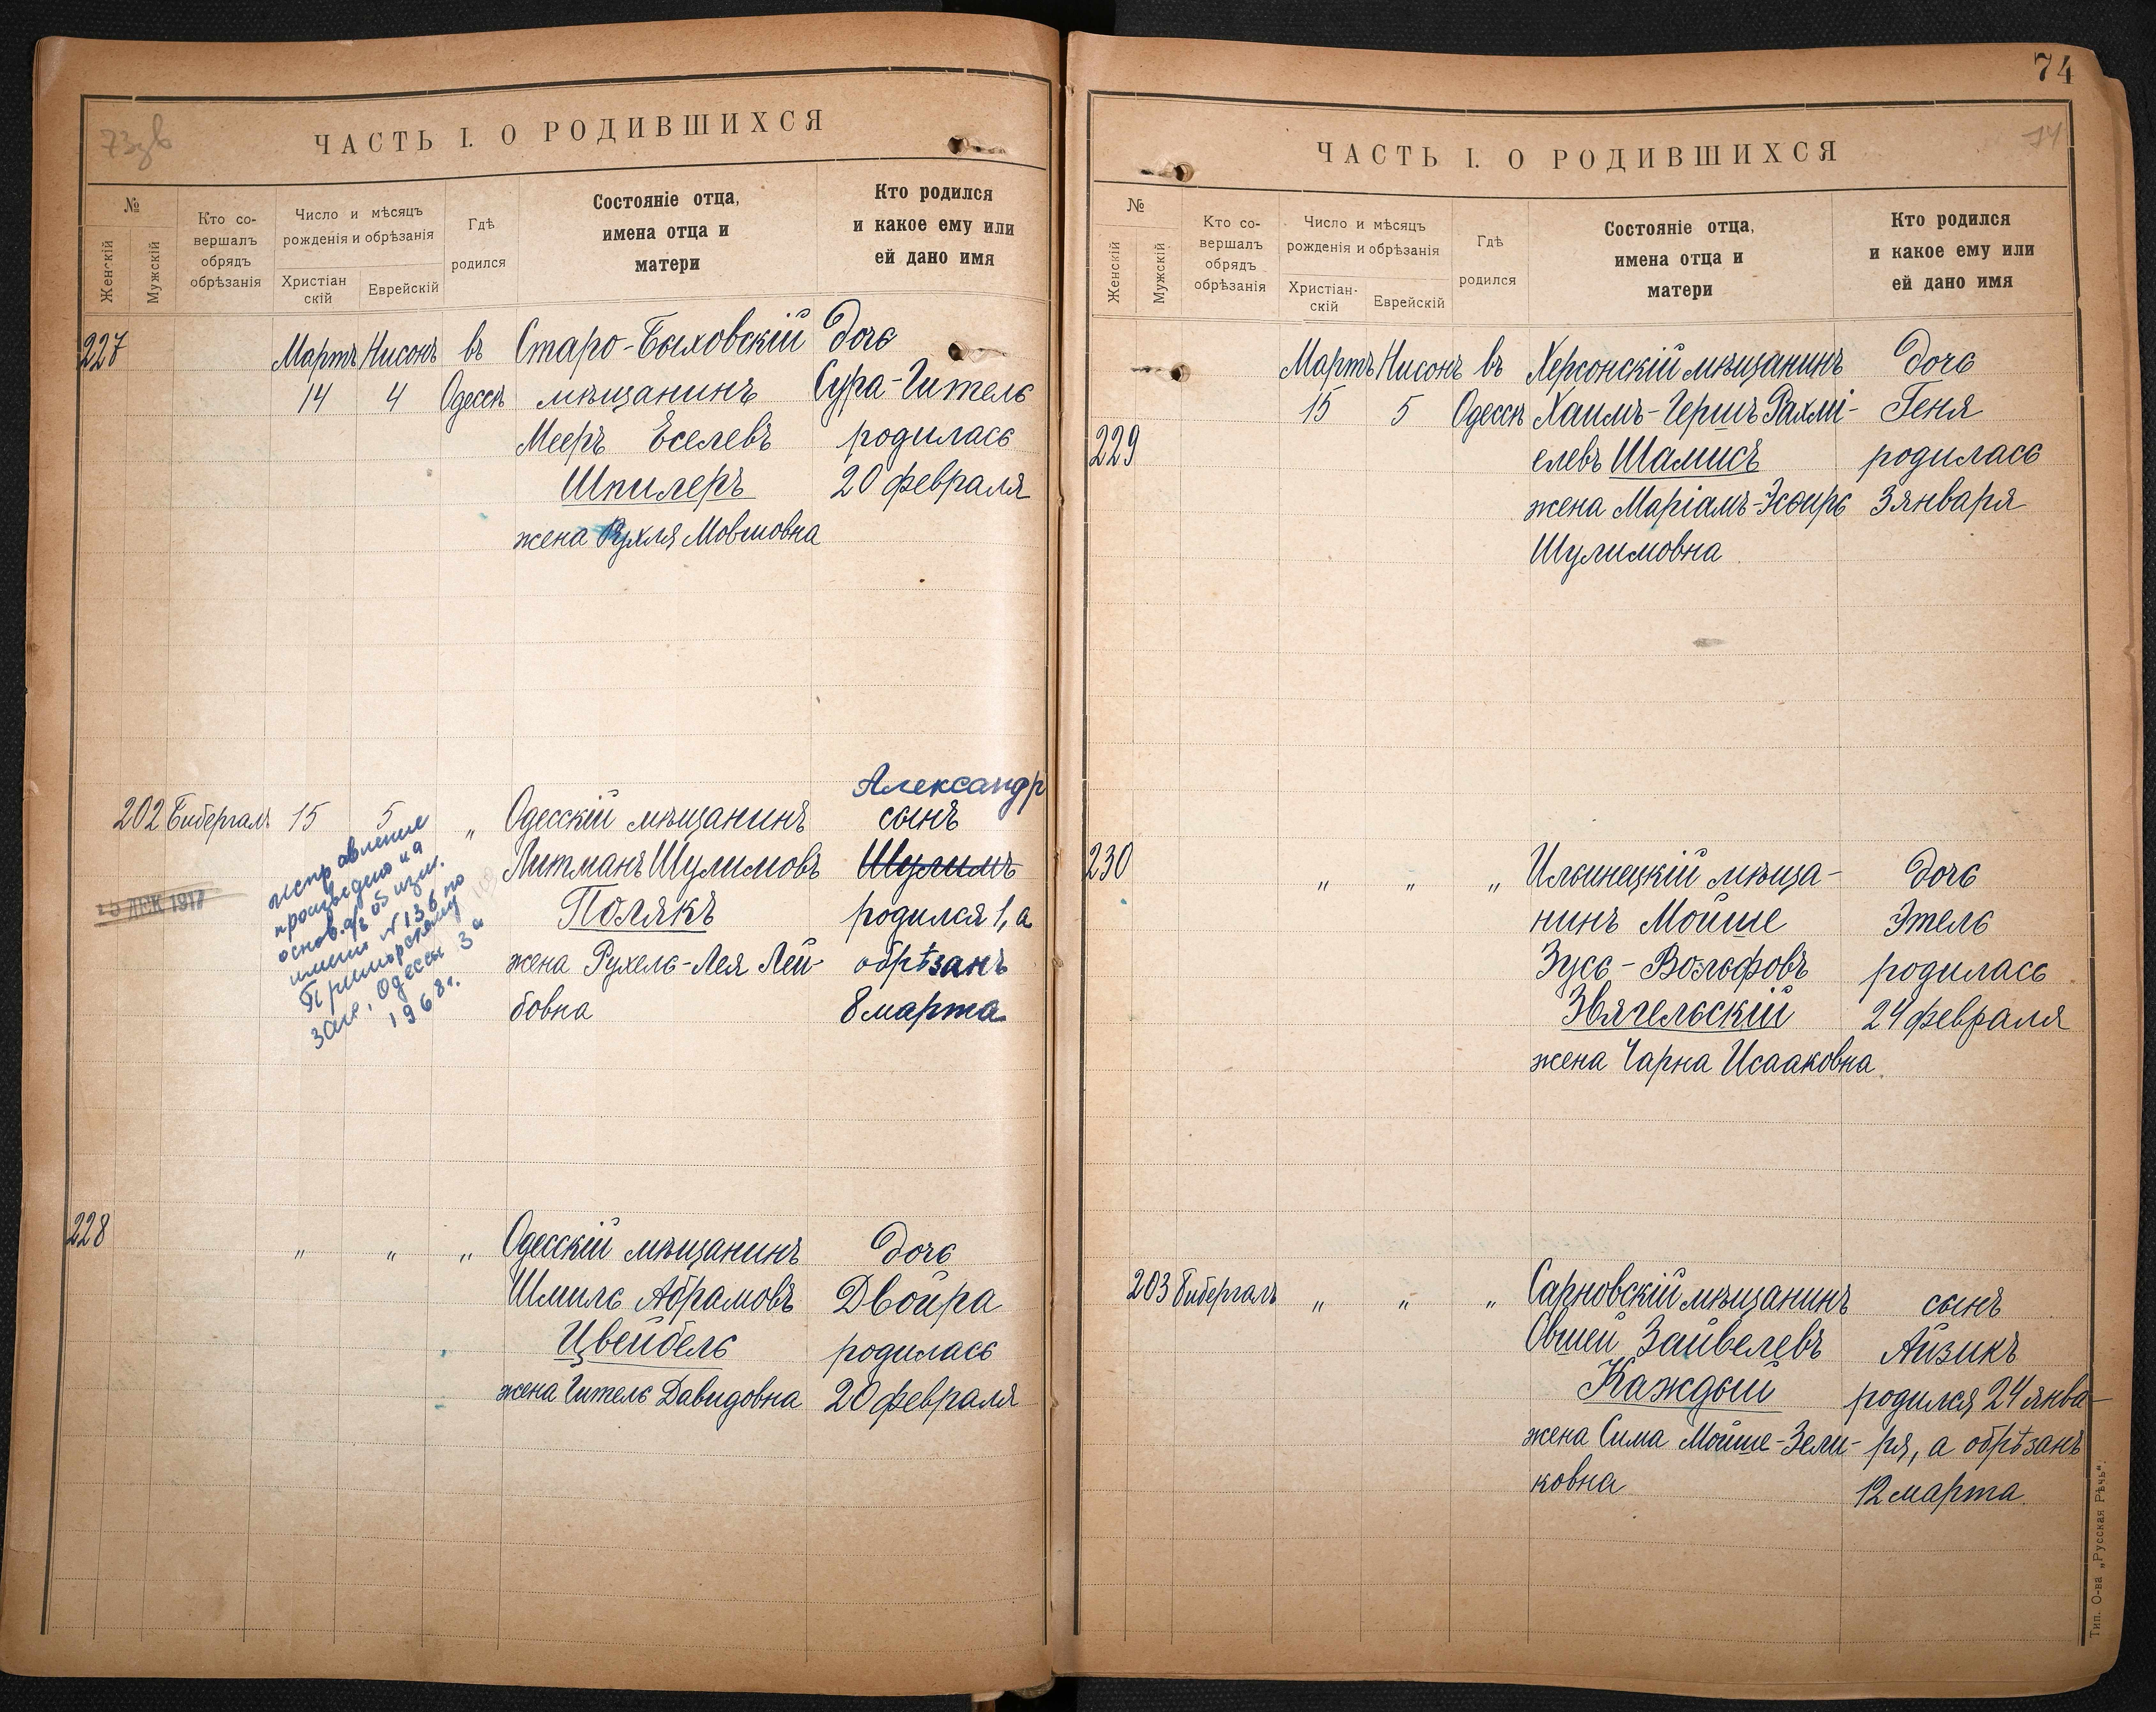 73зв
ЧАСТЬ I. О РОДИВШИХСЯ
№
Женскій
Мужскій
Кто со-
вершалъ
обрядъ
обрѣзанія
Число и мѣсяцъ
рожденія и обрѣзанія
Христіан
скій
Еврейскій
Гдѣ
родился
Состояніе отца,
имена отца и
матери
Кто родился
и какое ему или
ей дано имя
227 Мартъ Нисонъ въ Старо-Быховскій дочь
14 4 Одессѣ мѣщанинъ Сура-Гитель
Мееръ Еселевъ родилась
Шпилеръ 20 февраля
жена Рухля Мовшовна
Александр
202 Бибергалъ 15 5 „ Одесскій мѣщанинъ сынъ
Литманъ Шулимовъ Шулимъ
Полякъ родился 1, а
жена Рухель-Лея Лей- обрѣзанъ
бовна 8 марта
исправление
произведено на
основ. а/з об изм.
имени N 136 по
Приморскому
Загс, Одессы за
1968 г.
ДЕК 1917
228 „ „ „ Одесскій мѣщанинъ дочь
Шмиль Абрамовъ Двойра
Цвейбель родилась
жена Гитель Давидовна 20 февраля
74
74
ЧАСТЬ I. О РОДИВШИХСЯ
№
Женскій
Мужскій
Кто со-
вершалъ
обрядъ
обрѣзанія
Число и мѣсяцъ
рожденія и обрѣзанія
Христіан-
скій
Еврейскій
Гдѣ
родился
Состояніе отца,
имена отца и
матери
Кто родился
и какое ему или
ей дано имя
Мартъ Нисонъ въ Херсонскій мѣщанинъ дочь
15 5 Одессѣ Хаимъ-Гершъ Рахмі- Геня
229 елевъ Шамисъ родилась
жена Маріамъ-Эсѳирь 3 января
Шулимовна
230 „ „ „ Ильинецкій мѣща- дочь
нинъ Мойше Этель
Зусь-Вольфовъ родилась
Звягельскій 24 февраля
жена Чарна Исааковна
203 Бибергалъ „ „ „ Сарновскій мѣщанинъ сынъ
Овшей Зайвелевъ Айзикъ
Каждый родился 24 янва-
жена Сима Мойше-Зели- ря, а обрѣзанъ
ковна 12 марта
Тип. О-ва „Русская Рѣчь“.